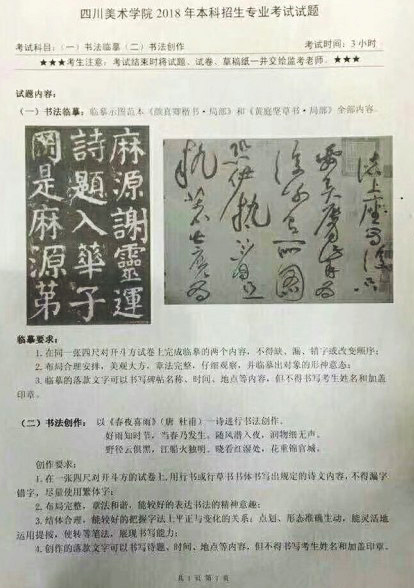 四川美术学院 2018 年本科招生专业考试试题
考试科目：（一）书法临摹（二）书法创作 考试时间：3 小时
★★★考生注意：考试结束时将试题、试卷、草稿纸一并交给监考老师。★★★
试题内容：
（一）书法临摹：临摹示图范本《颜真卿楷书·局部》和《黄庭坚草书·局部》全部内容。
麻源謝靈運
詩題入華子
岡是麻源第
諸上座為復只
恐伊執著且
临摹要求：
1.在同一张四尺对开斗方试卷上完成临摹的两个内容，不得缺、漏、错字或改变顺序；
2.布局合理安排，美观大方，章法完整，仔细观察，并临摹出对象的形神意态；
3.临摹的落款文字可以书写碑帖名称、时间、地点等内容，但不得书写考生姓名和加盖
印章。
（二）书法创作： 以《春夜喜雨》（唐 杜甫）一诗进行书法创作。
好雨知时节，当春乃发生。随风潜入夜，润物细无声。
野径云俱黑，江船火独明。晓看红湿处，花重锦官城。
创作要求：
1.在一张四尺对开斗方的试卷上，用行书或行草书书体书写出规定的诗文内容，不得漏字
错字，尽量使用繁体字；
2.布局完整，章法和谐，能较好的表达书法的精神意趣；
3.结体合理，能较好的把握字法上平正与变化的关系；点划、形态准确生动，能灵活地
运用提按，使转等笔法，展现书写能力；
4.创作的落款文字可以书写诗题、时间、地点等内容，但不得书写考生姓名和加盖印章。
共 1 页 第 1 页